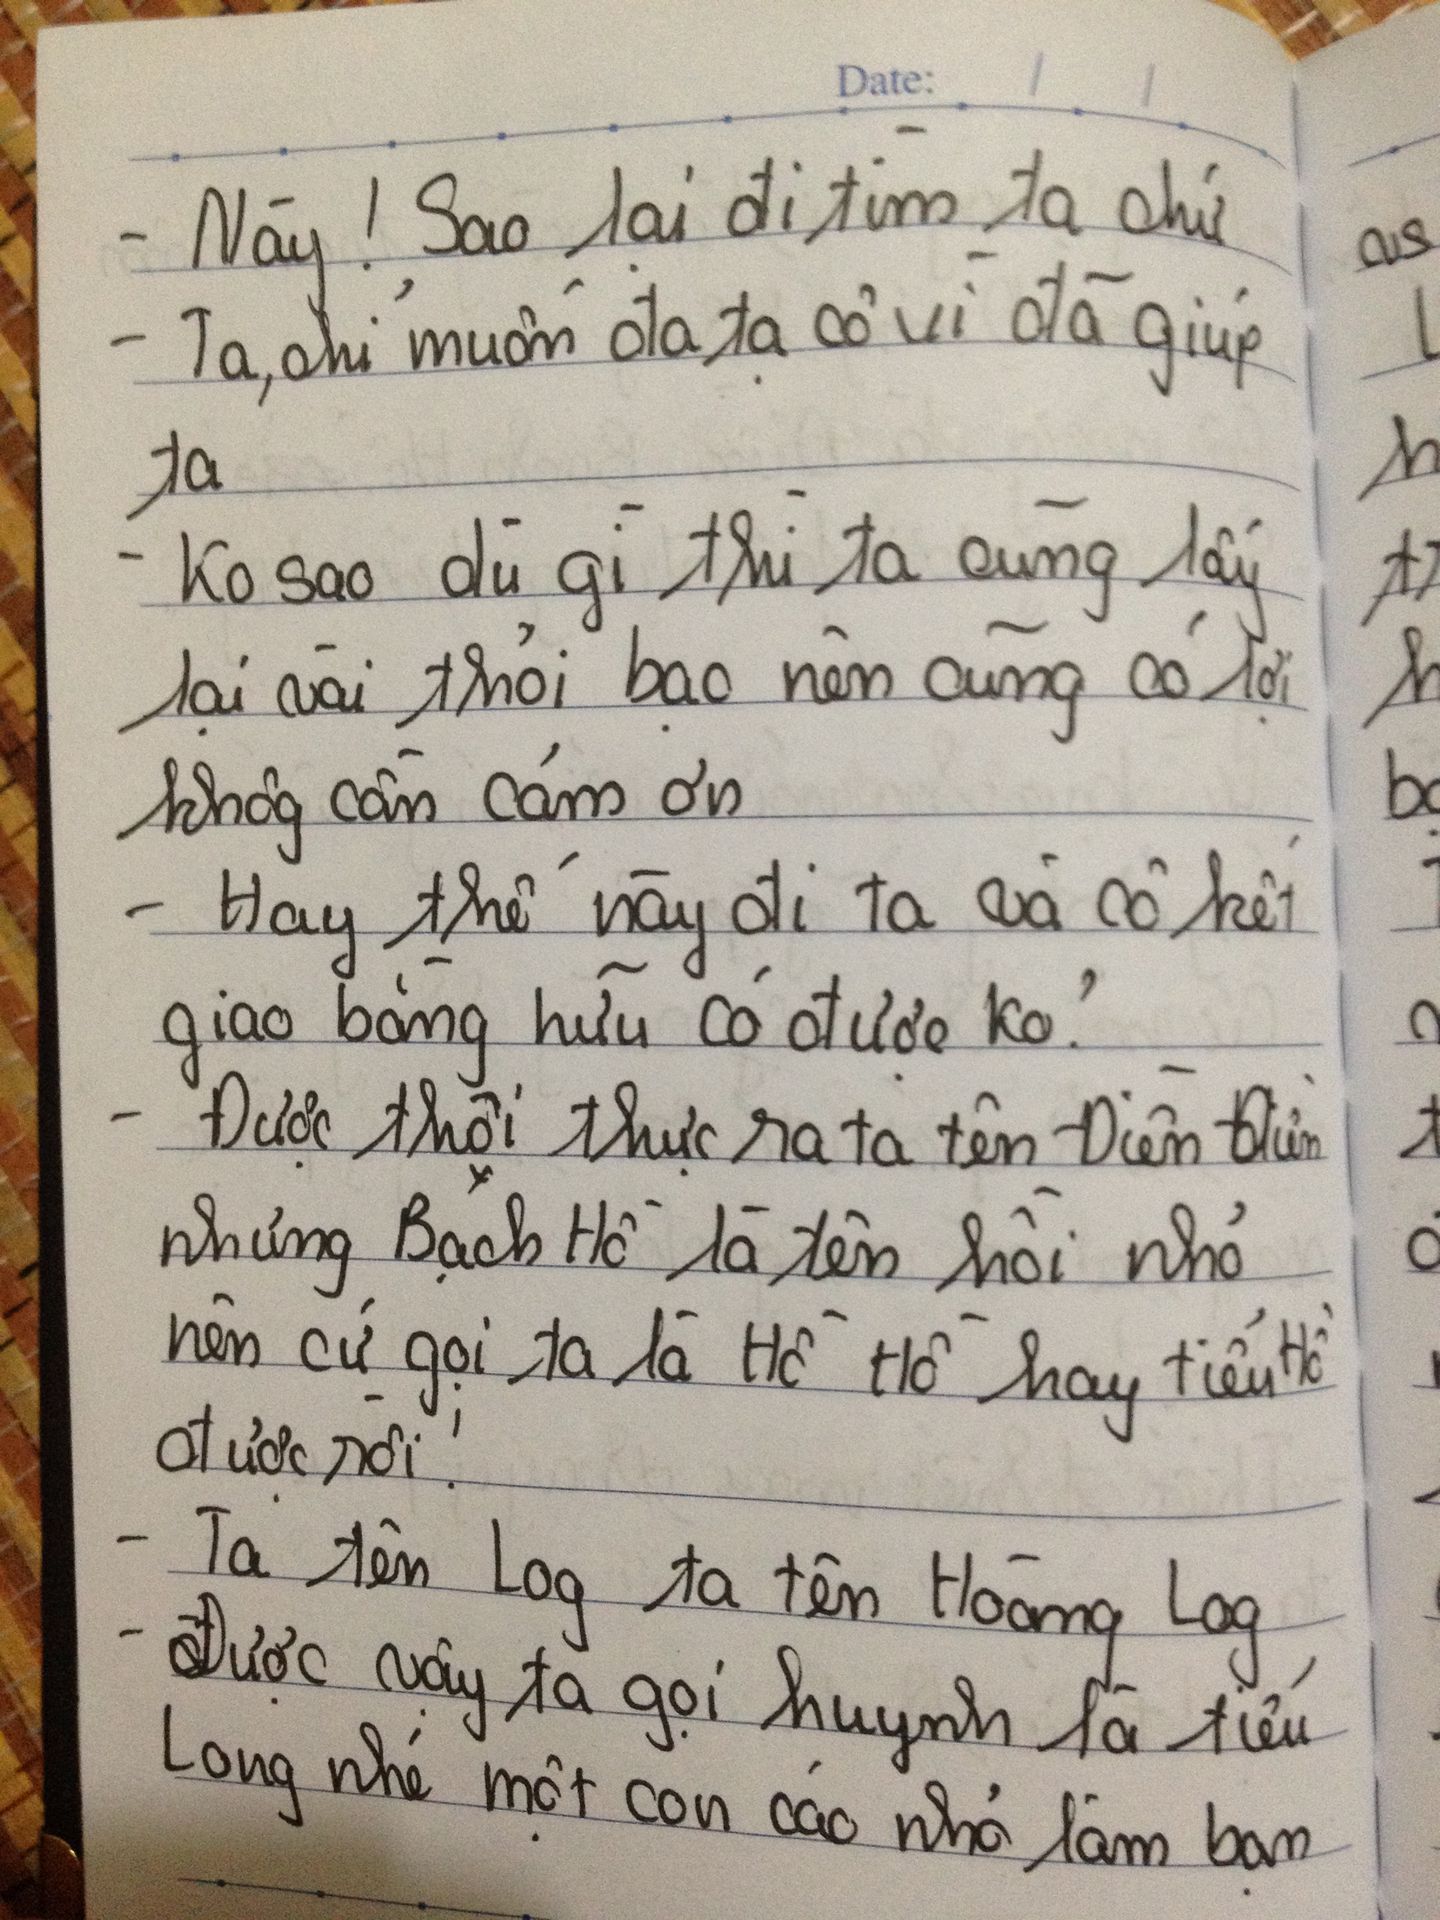 Date: / /
- Này! Sao lại đi tìm ta chứ
- Ta, chỉ muốn đa tạ cô vì đã giúp
ta
- Ko sao dù gì thì ta cũng lấy
lại vài thỏi bạc nên cũng có lợi
khôg cần cám ơn
- Hay thế này đi ta và cô kết
giao bằng hữu có được ko!
- Được thôi thực ra ta tên Diên
nhưng Bạch Hồ là tên hồi nhỏ
nên cứ gọi ta là Hồ Hồ hay tiểu Hồ
được rồi!
- Ta tên Log ta tên Hoàng Log
- Được vậy ta gọi huynh là tiểu
Long nhé một con cáo nhỏ làm bạn